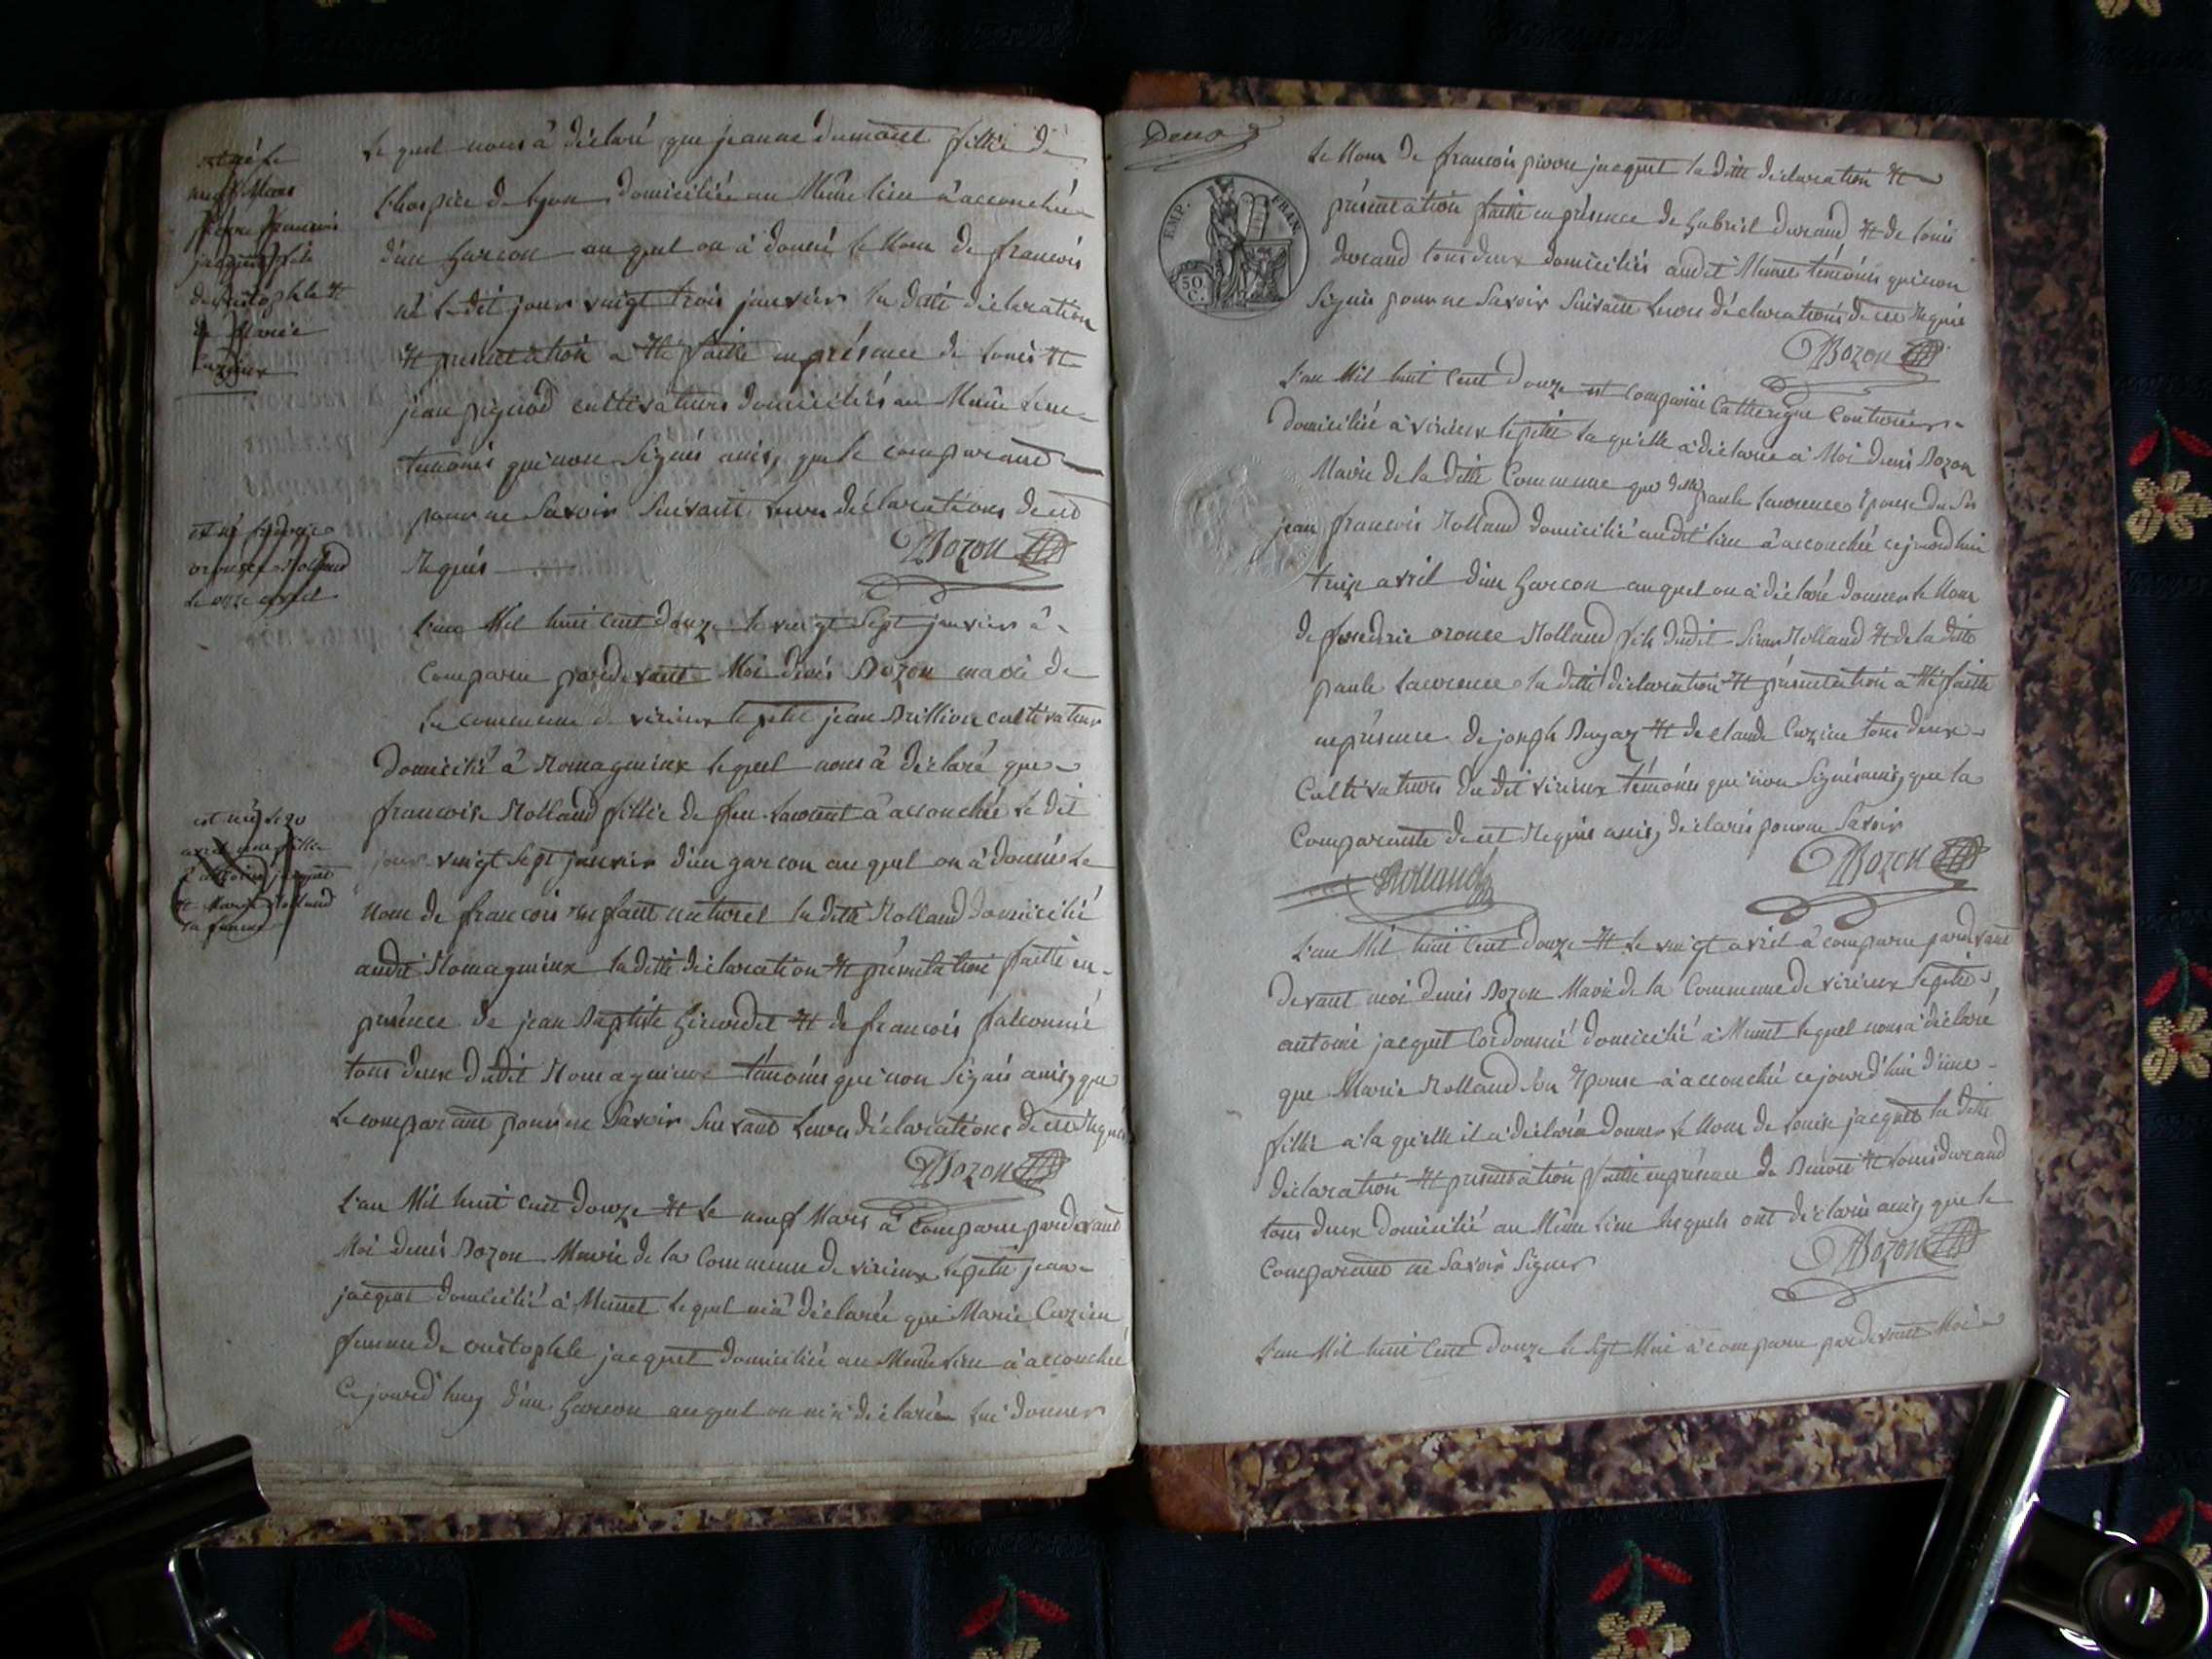 est né le
neuf Mars
pierre francois
jacquet fils
de cristophle et
de Marie
Cuzieu
Le quel nous à déclaré que jeanne dumont fillie de
L'hospice de Lyon domiciliée au Même lieu à accouchée
d'un Garcon au quel on à donné le Nom de francois
né le dit jour vingt trois janvier la ditte déclaration
et présentation a été faitte en présence de Louis et
jean pignod cultivateurs domiciliés au Même Lieu
témoins qui non Signés ainsy que le comparant
pour ne Savoir Suivant Leurs déclarations de ce
Requis
DBozon
est né frederic
oronce Rolland
Le onze avril
L'an Mil huit cent douze le vingt Sept janvier à
Comparu pardevant Moi denis Bozon maire de
La commune de virieux le petit jean Brillion cultivateur
Domicilié à Romagnieux le quel nous à déclaré que
francoise Rolland fillie de feu Laurent à accouchée le dit
jour vingt Sept janvier d'un garcon au quel on à donnés Le
Nom de francois enfant naturel la ditte Rolland domicilié
audit Romagnieux la ditte déclaration et présentation faitte en
présence de jean Baptiste Girerdet et de francois falconnié
tous deux dudit Romagnieux témoins qui non Signés ainsy que
Le comparant pour ne Savoir Suivant Leurs déclarations de ce Requis
DBozon
est née le 20
avril une fillie
d'antoine jacquet
et Marie Rolland
sa femme
L'an Mil huit cent douze et le neuf Mars à Comparu pardevant
Moi denis Bozon Maire de la Commune de virieux le petit jean
jacquet domicilié à Munet le quel m'à déclarée que Marie Cuzieu
femme de cristophle jacquet domiciliée au Même Lieu à accouchée
Cejourd'huy d'un Garcon au quel on m'a déclarée lui donner
Deux
EMP. FRAN.
50 C.
Le Nom de francois pierre jacquet la ditte déclaration et
présentation faitte en présence de Gabriel durand et de Louis
durand tous deux domiciliés audit Munet témoins qui non
Signés pour ne Savoir Suivant Leurs déclarations de ce Requis
DBozon
L'an Mil huit Cent douze est comparüe Catherigne Couturier
Domiciliée à virieux le petit la quelle à déclarée à Moi denis Bozon
Maire de la ditte Commune que paule Laurence épouse du Sr
jean francois Rolland domicilié audit lieu à accouchée cejourd'hui
avril d'un Garcon au quel on à déclaré donner le Nom
de frederic oronce Rolland fils dudit Sieur Rolland et de la ditte
paule Laurence la ditte déclaration et présentation a été faitte
en présence de joseph Bugaz et de claude Cuzieu tous deux
Cultivateurs du dit virieux témoins qui non Signés ainsy que la
Comparante de ce Requis ainsy déclarés pour ne Savoir
Rolland
DBozon
L'an Mil huit Cent douze et Le vingt avril à comparu pardevant
Devant moi denis Bozon Maire de la Commune de virieux Le petit
antoine jacquet Cordonnié domicilié à Munet le quel nous à déclaré
que Marie Rolland Son épouse à accouchée cejourd'hui d'une
fillie à la quelle il à déclarée donner le Nom de Louise jacquet la ditte
déclaration et présentation faitte en présence de Benoit et Louis durand
tous deux domicilié au Même Lieu les quels ont déclarés ainsy que le
Comparant ne Savoir Signer
DBozon
L'an Mil huit Cent Douze le Sept Mai à comparu pardevant Moi